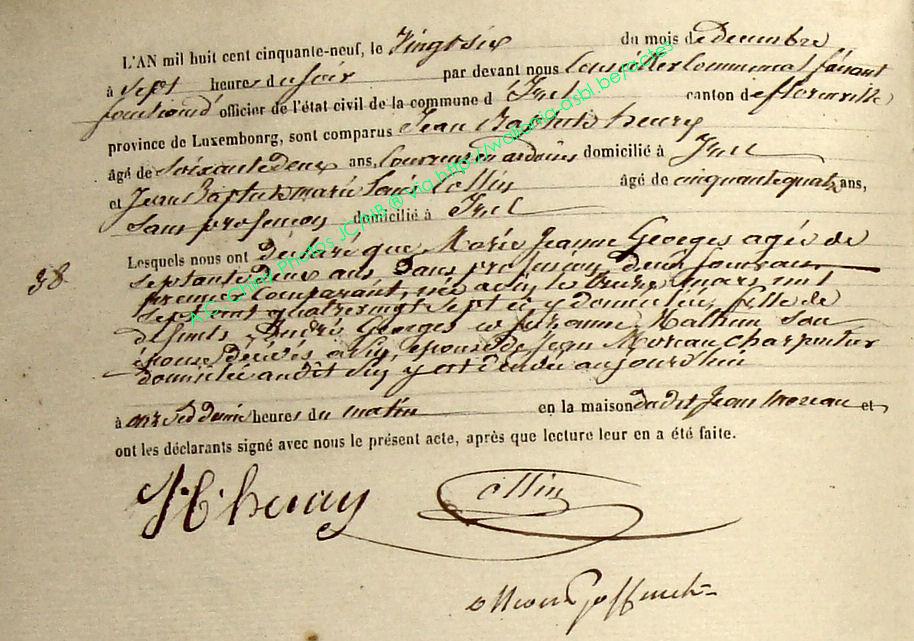 L'AN mil huit cent cinquante-neuf, le Vingt six du mois de decembre
à sept heures du soir par devant nous Conseiller Communal faisant
fonction d' officier de l'état civil de la commune d Izel canton de florenville
province de Luxembourg, sont comparus Jean Baptiste henry
âgé de Soixante deux ans, Couvreur en ardoises domicilié à Izel
et Jean Baptiste marie Collin âgé de cinquante quatre ans,
Sans profession domicilié à Izel
Lesquels nous ont déclaré que Marie Jeanne Georges agée de
38
septante deux ans, Sans profession,
premier Comparant, née le treize mars mil
Sept cent quatre vingt sept et y domiciliée, fille de
défunts André Georges et Jeanne Mathieu Son
épouse, décédés epouse de Jean Moreau Charpentier
domicilié audit y est décédée aujourd'hui
à onze et demie heures du matin en la maison dudit Jean Moreau et
ont les déclarants signé avec nous le présent acte, après que lecture leur en a été faite.
J. B. henry Collin
Goffinet